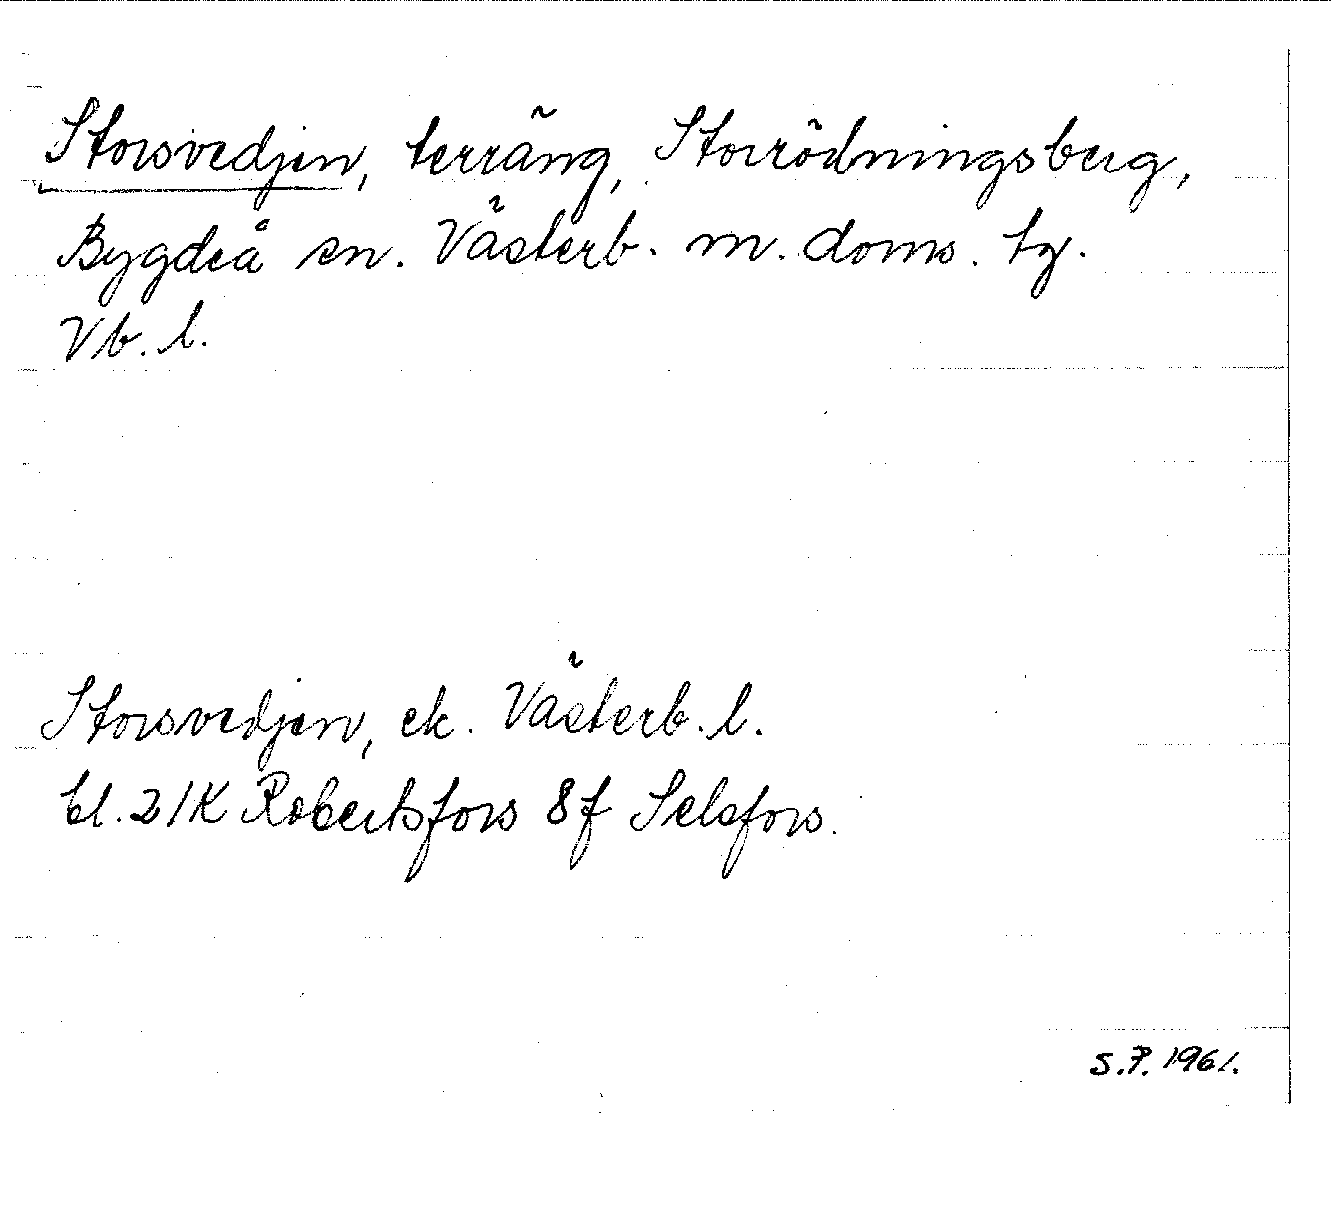 Storsvedjen, terräng, Storrödningsberg,
Bygdeå sn. Västerb. m. doms. tg.
Vb. l.
Storsvedjen, ek. Västerb. l.
bl. 21K Robertsfors 8f Selsfors.
S.P. 1961.